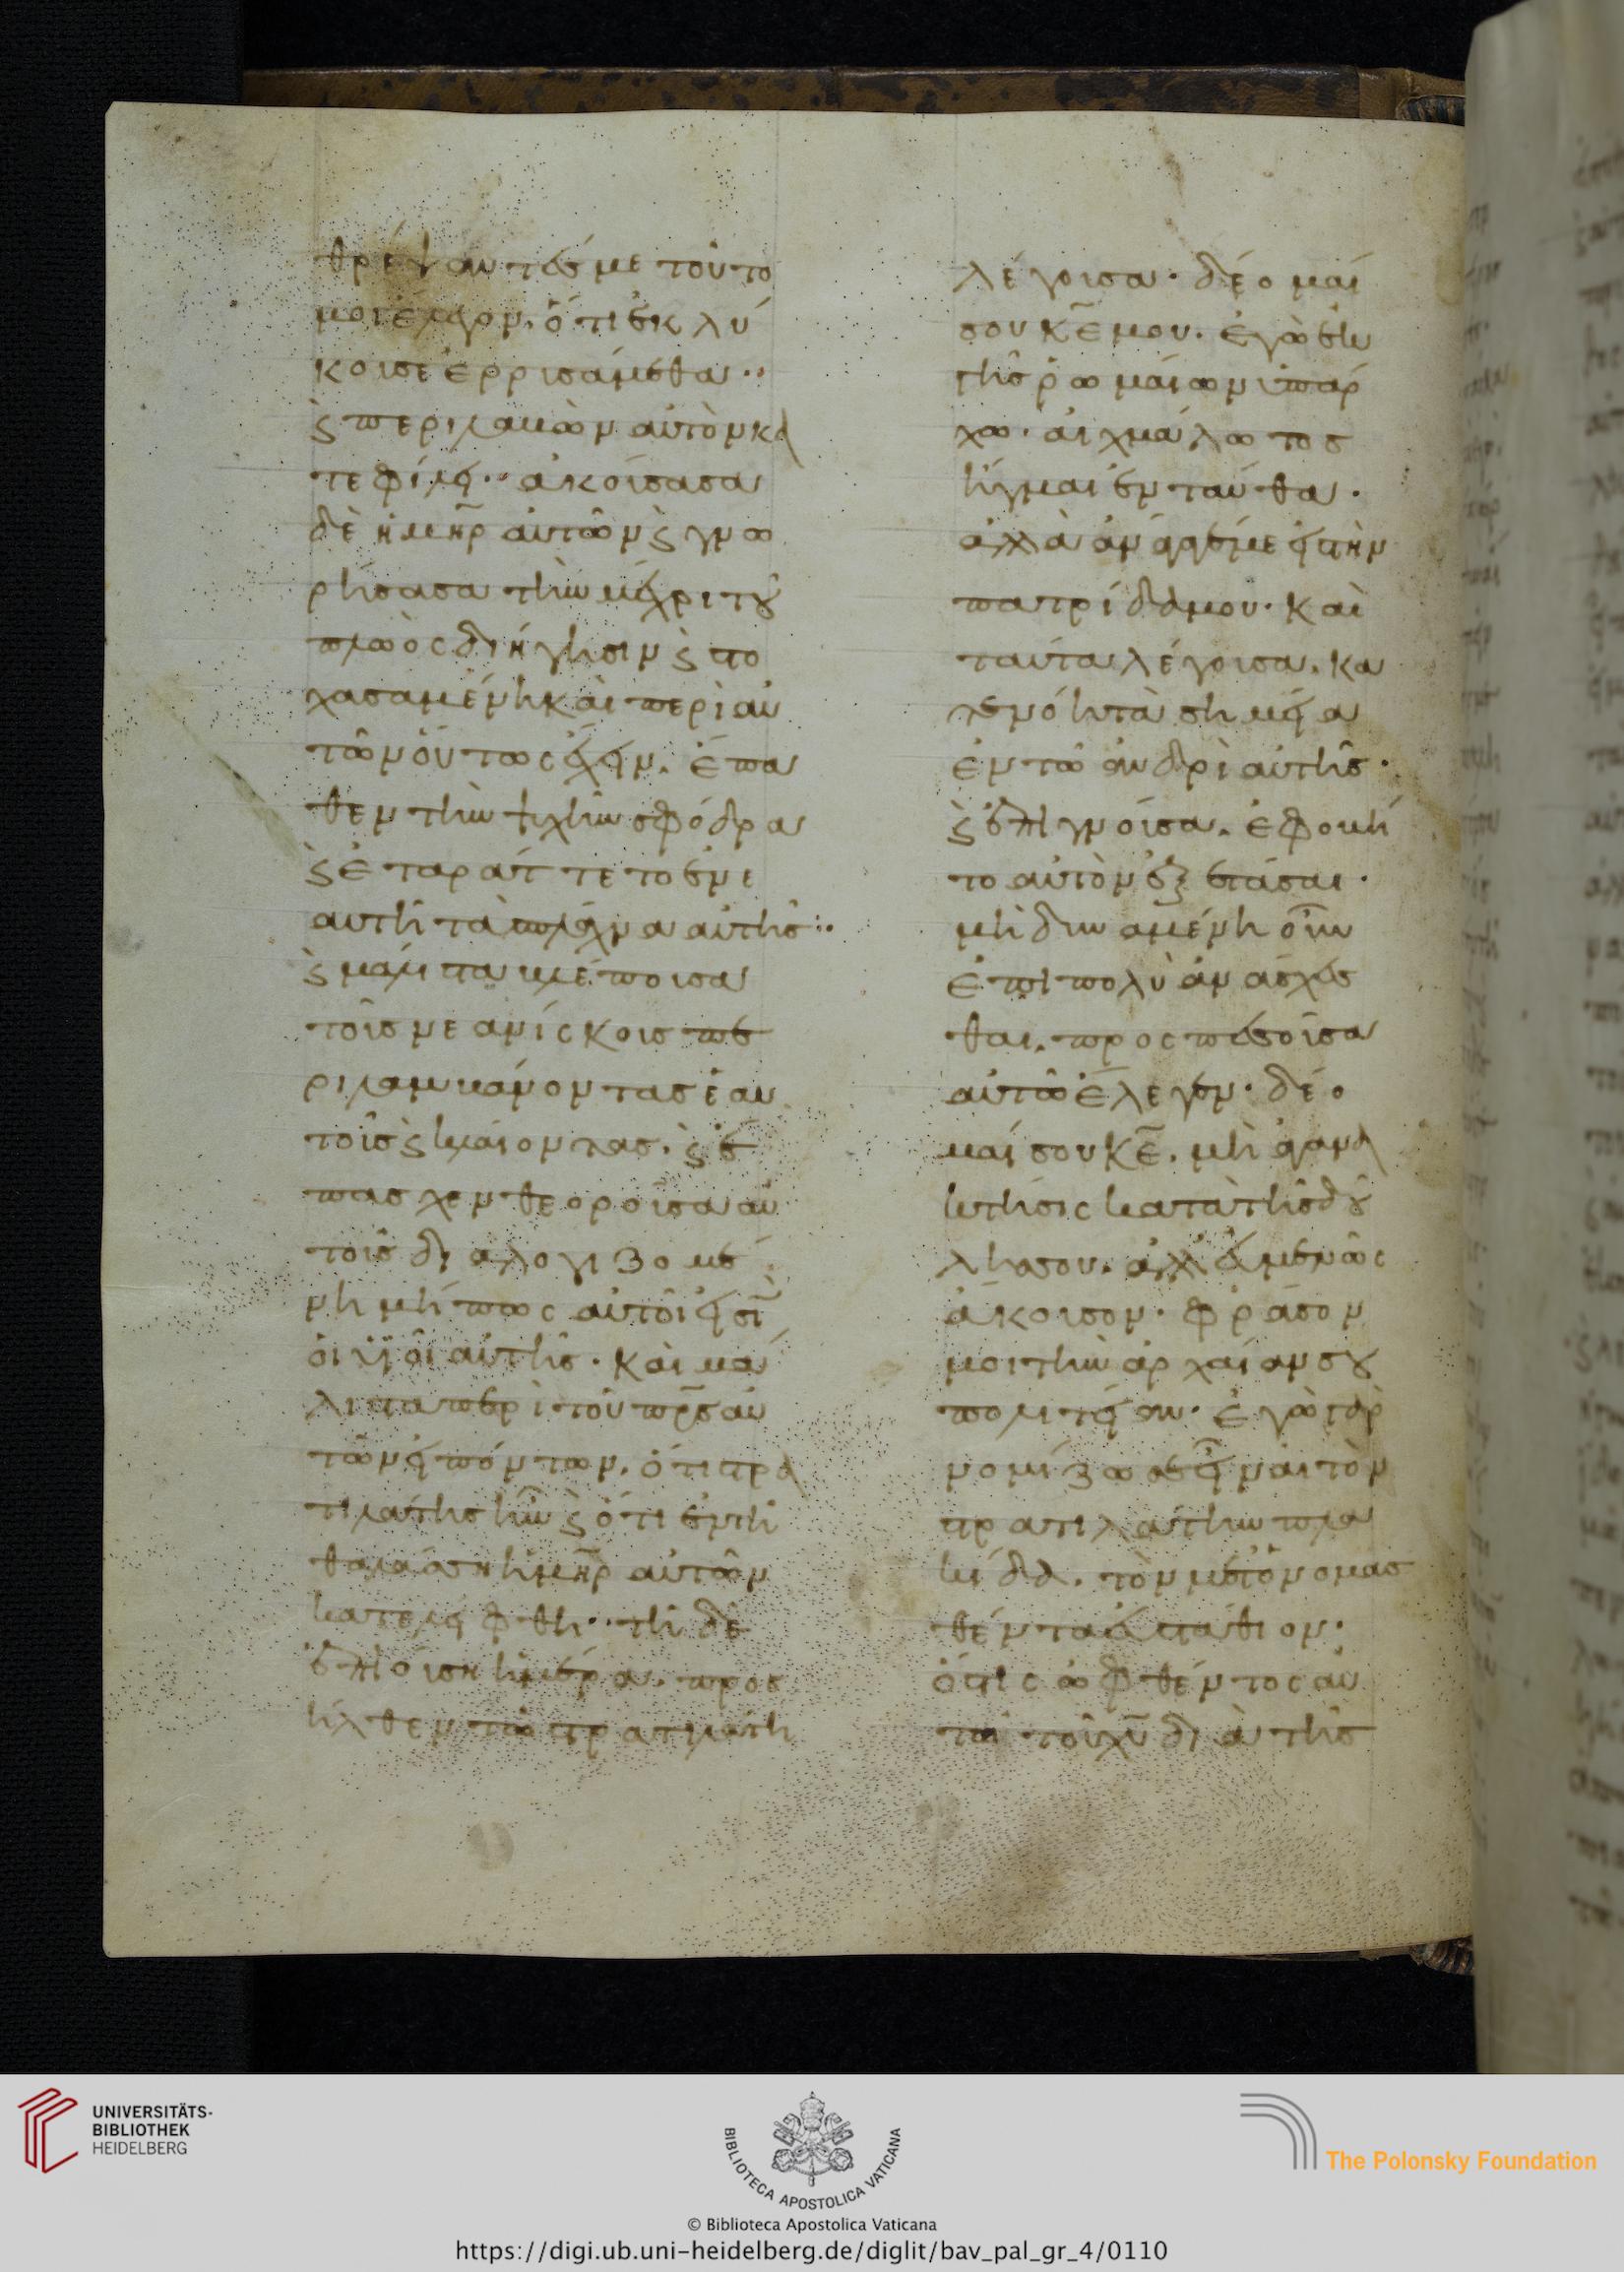 θρέψαντές με τοῦτο
μοι ἔλεγον. ὅτι ἐκ λύ
κου σε ἐρρυσάμεθα··
ϛ περιλαβὼν αὐτὸν κα
τεφίλει·· ἀκούσασα
δὲ ἡ μηρ αὐτῶν ϛ γνω
ρήσασα τὴν μέχρι τοῦ
πλωὸς διήγησιν ϛ στο
χασαμένη καὶ περὶ αὐ
τῶν οὕτως ἔχειν. ἔπα
θεν τὴν ψυχὴν σφόδρα
ϛ ἐταράττετο ἐνε
αυτῆ τὰ σπλάχνα αὐτῆς:·
ϛ μάλιστα βλέπουσα
τοὺς νεανίσκους πε
ριλαμβάνοντας ἑαυ
τοὺς ϛ κλάιοντας. ϛ ἔ
πασχεν θεοροῦσα αὐ
τοὺς διαλογιζομέ
νη μήπως αὐτοὶ εἰσὶ
οἱ υἱοὶ αὐτῆς. καὶ μά
λιστα περὶ τοῦ πρς αὐ
τῶν εἰπόντων. ὅτι στρα
τιλάτης ἦν ϛ ὅτι ἐν τῆ
θαλάσση ἡ μηρ αὐτῶν
κατελείφθη·· τῆ δὲ
ἐπιούση ἡμέρα. προσ
ῆλθεν τῶ στρατιλάτη
λέγουσα· δέομαί
σου κε μου. ἐγὼ ἐκ
τῆς ρωμαίων ὑπάρ
χω. αἰχμάλωτος
ἦγμαι ἐνταῦθα.
ἀλλὰ ἀνάγαγέ με εἰς τὴν
πατρίδα μου. καὶ
ταῦτα λέγουσα. κα
τενόει τὰ σημεῖα
ἐν τῶ ἀνδρὶ αὐτῆς.
ϛ ἐπιγνοῦσα. ἐφοβεῖ
το αὐτὸν ἐξετάσαι.
μὴ δυναμένη οὖν
ἐπιπολὺ ἀνασχέσ
θαι. προσπεσοῦσα
αὐτῶ ἔλεγεν. δέο
μαί σου κε. μὴ ἀγανα
κτήσις κατὰ τῆς δού
λης σου. ἀλλ' εὐμενῶς
ἄκουσον. φράσον
μοι τὴν ἀρχαίαν σου
πολιτείαν. ἐγὼ γὰρ
νομίζω σε εἶναι τὸν
στρατιλάτην πλα
κίδα. τὸν μετονομασ
θέντα εὐστάθιον.
ὅστις ὀφθέντος αὐ
τῶ τοῦ χυ διὰ τῆς
UNIVERSITÄTS-
BIBLIOTHEK
HEIDELBERG
BIBLIOTECA APOSTOLICA VATICANA
The Polonsky Foundation
© Biblioteca Apostolica Vaticana
https://digi.ub.uni-heidelberg.de/diglit/bav_pal_gr_4/0110